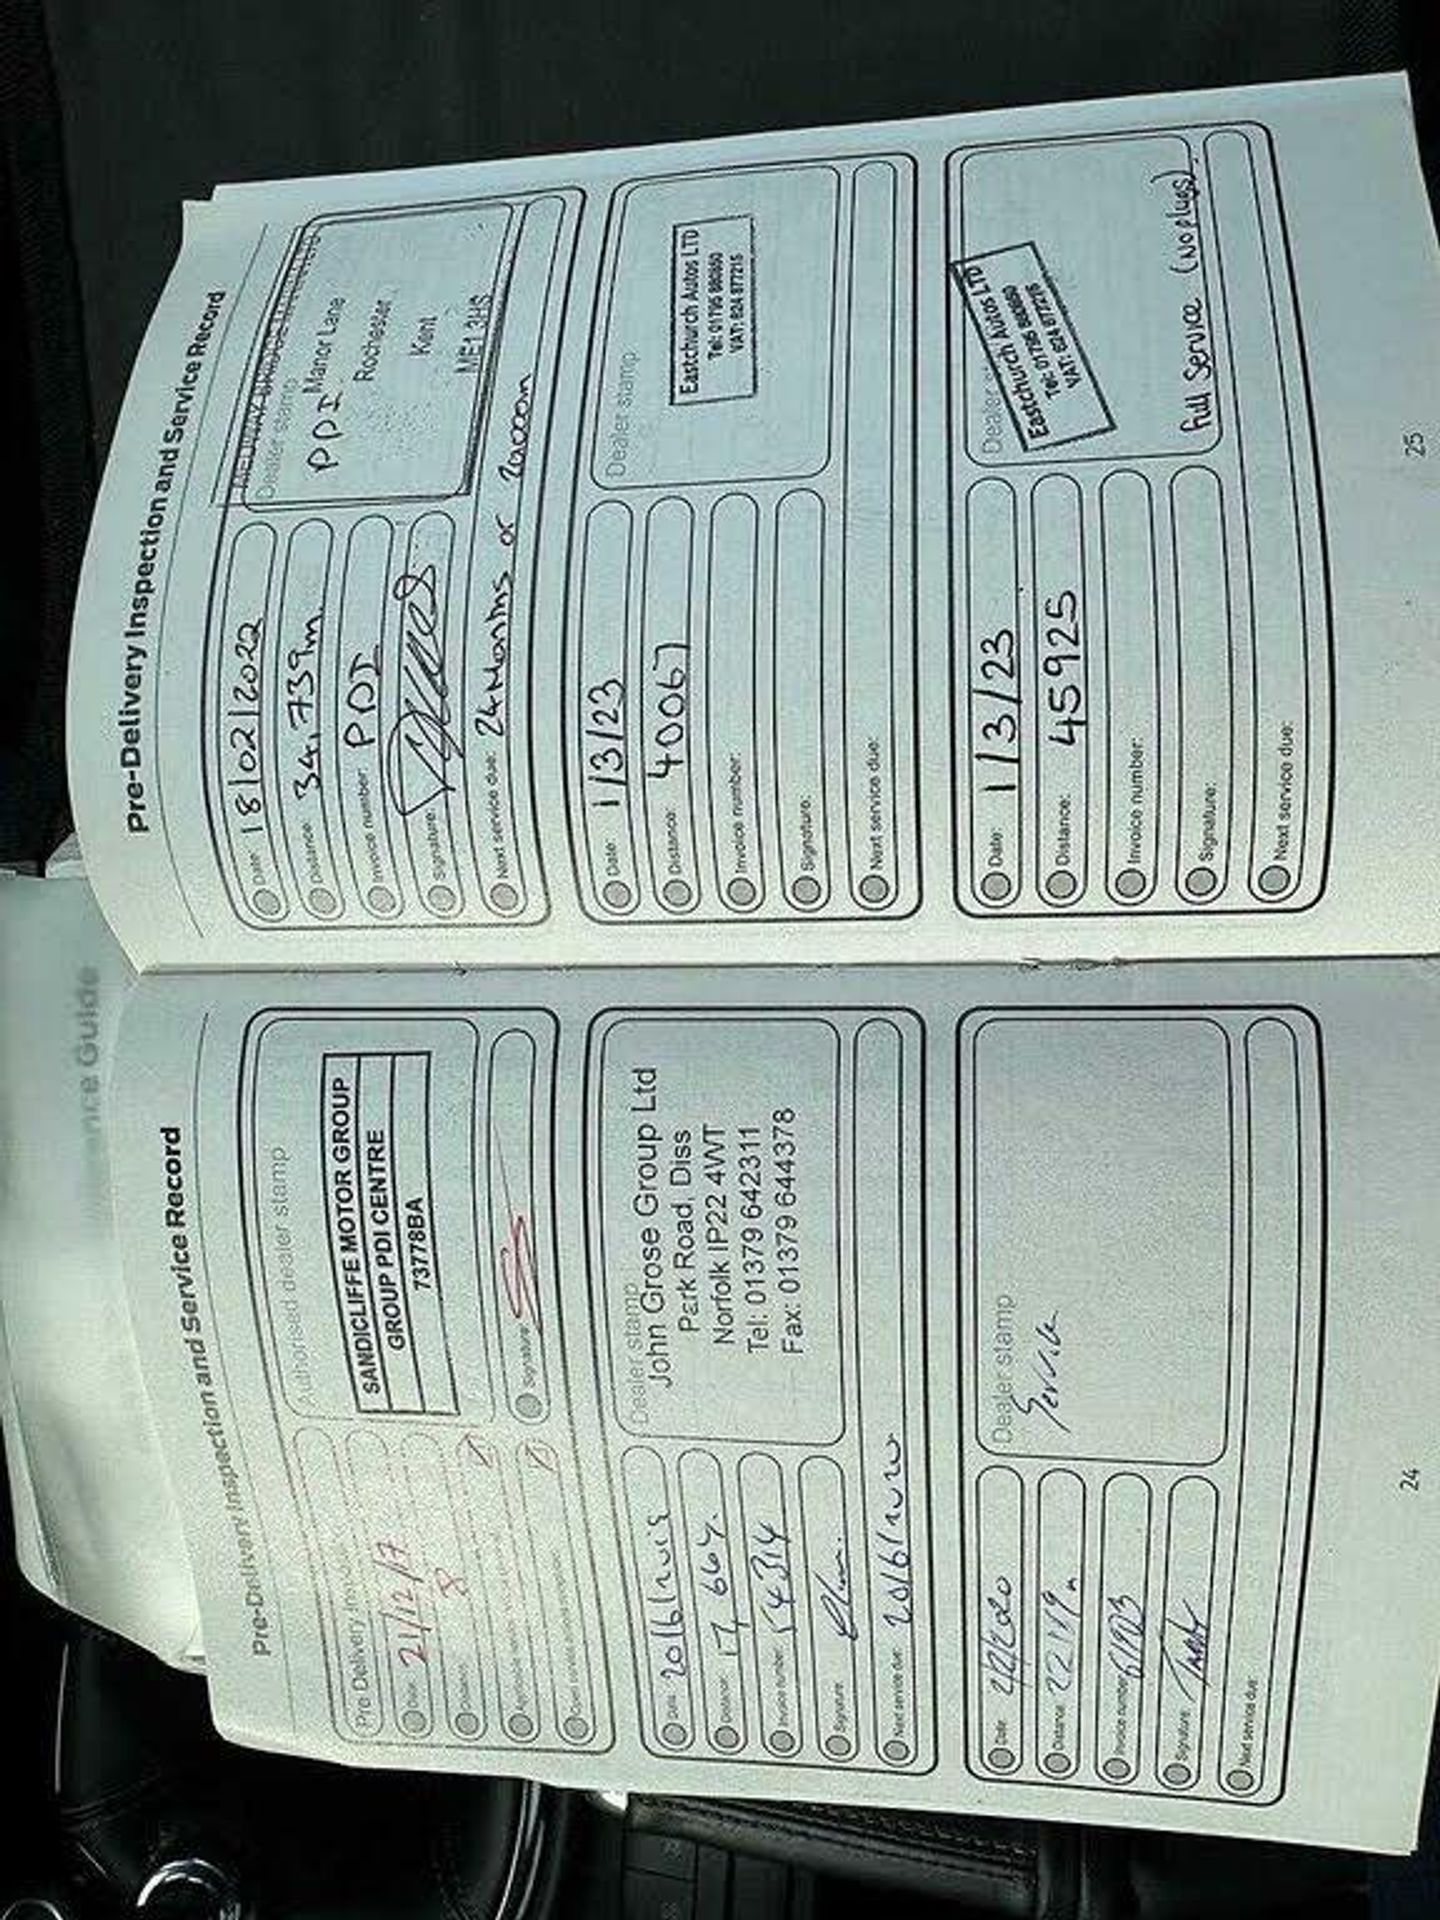 ance Guide
Pre-Delivery Inspection and Service Record
Pre Delivery
Authorised dealer stamp
Date: 21/12/17
Distance: 8
SANDICLIFFE MOTOR GROUP
GROUP PDI CENTRE
73778BA
Signature:
Date:
Distance: 17,667.
Invoice number: 54314
Signature:
Next service due:
Dealer stamp
John Grose Group Ltd
Park Road, Diss
Norfolk IP22 4WT
Tel: 01379 642311
Fax: 01379 644378
Date:
Distance: 22119m
Invoice number:
Signature:
Next service due:
Dealer stamp
Service
24
Pre-Delivery Inspection and Service Record
Date: 18/02/2022
Distance: 34,739m
Invoice number: PDI
Signature:
Next service due: 24 Months or 20000m
Dealer stamp
PDI
Manor Lane
Rochester
Kent
ME1 3HS
Date: 1/3/23
Distance: 40067
Invoice number:
Signature:
Next service due:
Dealer stamp
Eastchurch Autos LTD
Tel: 01795 880880
VAT: 824 877215
Date: 1/3/23
Distance: 45925
Invoice number:
Signature:
Next service due:
Dealer
Eastchurch Autos LTD
Tel: 01795 880880
VAT: 824 877215
Full Service (No plugs)
25